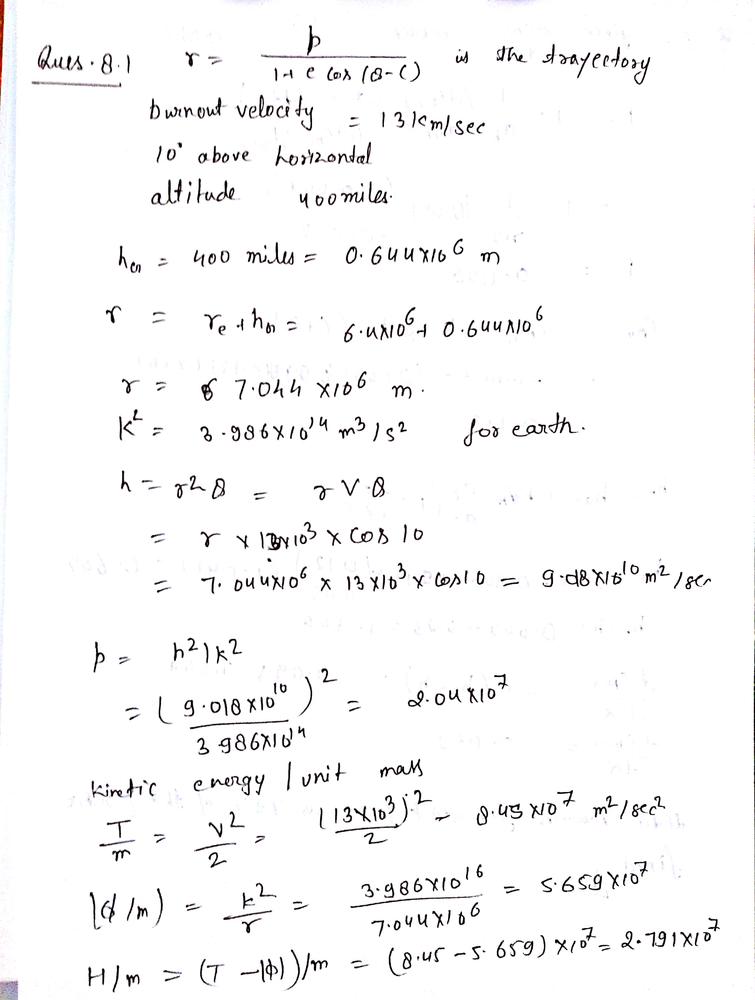 Ques. 8.1 r = p / (1 + e cos (θ - C)) is the trayectory
burnout velocity = 13 km/sec
10° above horizontal
altitude 400 miles.
hen = 400 miles = 0.644 × 10^6 m
r = re + hen = 6.4×10^6 + 0.644×10^6
r = 7.044 × 10^6 m.
K^2 = 3.986×10^14 m^3/s^2 for earth.
h = r^2 θ = r V θ
= r × 13×10^3 × cos 10
= 7.044×10^6 × 13×10^3 × cos10 = 9.018×10^10 m^2/sec
p = h^2/k^2
= (9.018×10^10 / 3.986×10^14)^2 = 2.04×10^7
kinetic energy / unit mass
T/m = v^2/2 = (13×10^3)^2/2 = 8.45×10^7 m^2/sec^2
|ϕ/m| = k^2/r = 3.986×10^16 / 7.044×10^6 = 5.659×10^7
H/m = (T - |ϕ|)/m = (8.45 - 5.659) × 10^7 = 2.791×10^7